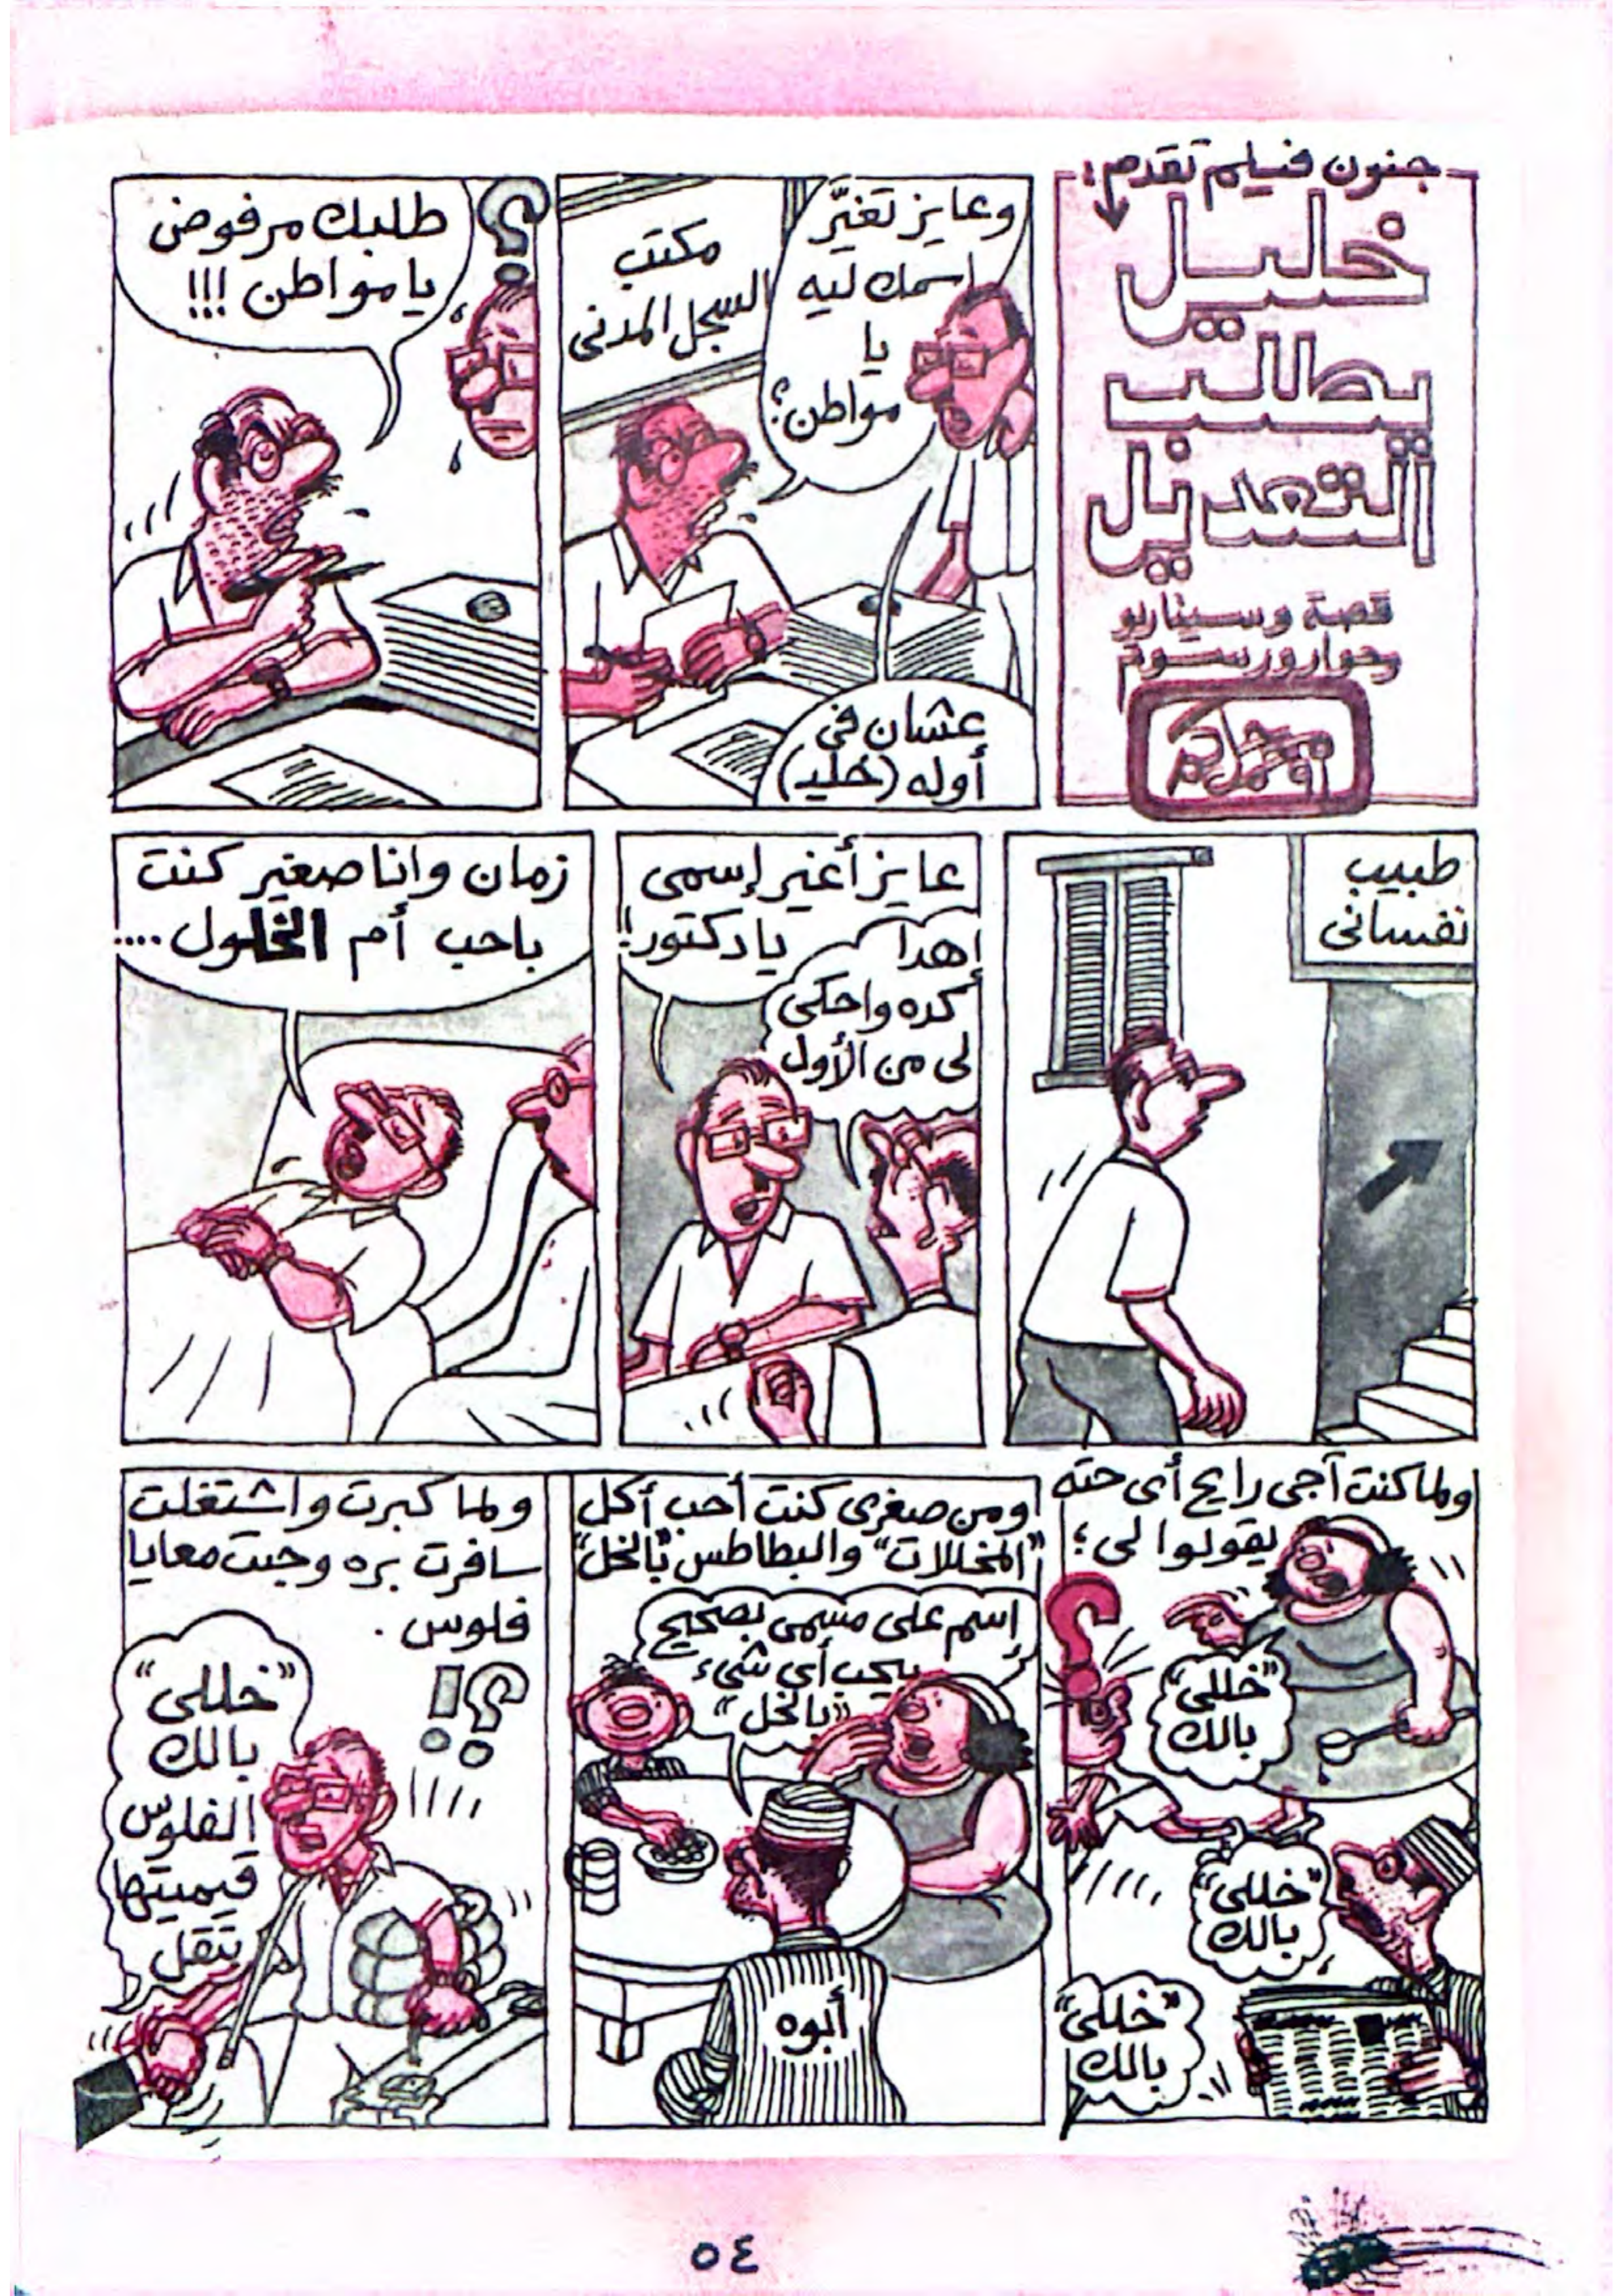 جنون فيلم تقدم:
خليل
يطلب
التعديل
قصة وسيناريو
وحوار ورسوم
وعايز تغيّر
اسمك ليه
يا
مواطن؟
مكتب
السجل المدنى
عشان فى
أوله (خليـ)
طلبك مرفوض
يا مواطن !!!
طبيب
نفسانى
عايز أغير إسمى
يا دكتور!!
إهدا
كده واحكى
لى من الأول
زمان وانا صغير كنت
باحب أم الخلول ....
ولما كنت آجى رايح أى حته
يقولوا لى ؛
"خللى"
بالك
"خللى"
بالك
"خللى"
بالك
ومن صغرى كنت أحب أكل
"المخللات" والبطاطس "بالخل"
إسم على مسمى بصحيح
يحب أى شىء
"بالخل"
أبوه
ولما كبرت واشتغلت
سافرت بره وجبت معايا
فلوس .
"خللى"
بالك
الفلوس
قيمتها
تقل
٥٤